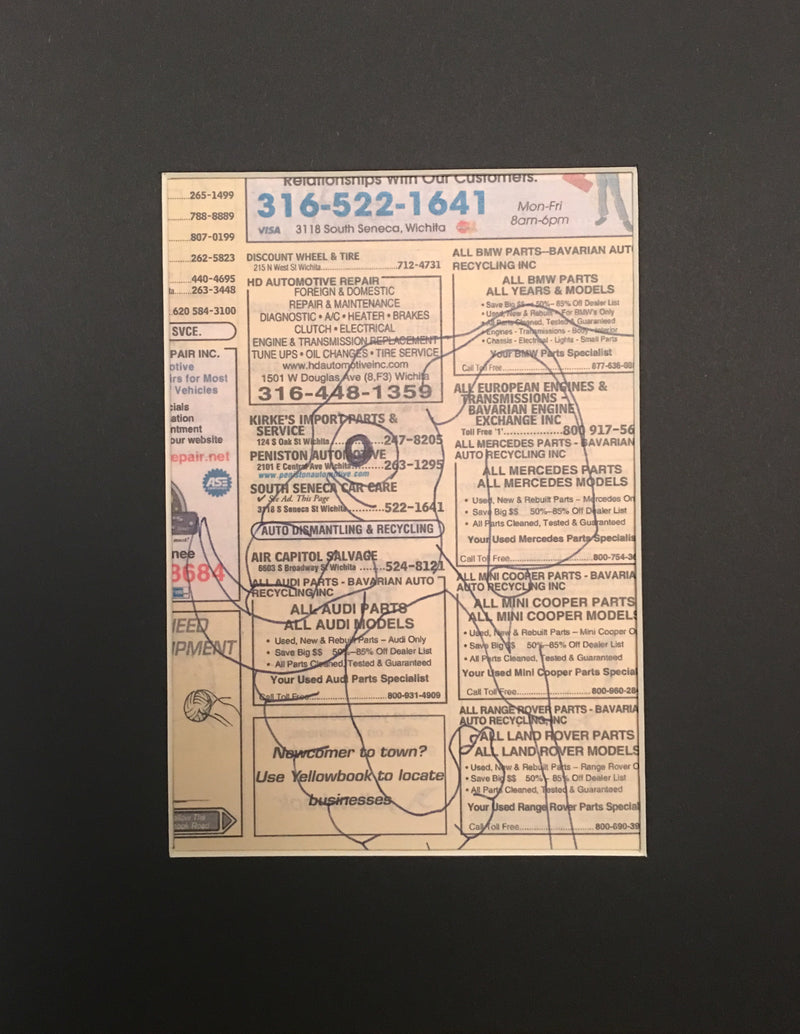 265-1499
788-8889
807-0199
262-5823
440-4695
263-3448
620 584-3100
SVCE.
PAIR INC.
otive
irs for Most
Vehicles
cials
ation
ntment
our website
epair.net
ASE
nee
3684
EED
IPMENT
Relationships With Our Customers.
316-522-1641
Mon-Fri
8am-6pm
VISA 3118 South Seneca, Wichita
DISCOUNT WHEEL & TIRE
215 N West St Wichita 712-4731
HD AUTOMOTIVE REPAIR
FOREIGN & DOMESTIC
REPAIR & MAINTENANCE
DIAGNOSTIC • A/C • HEATER • BRAKES
CLUTCH • ELECTRICAL
ENGINE & TRANSMISSION REPLACEMENT
TUNE UPS • OIL CHANGES • TIRE SERVICE
www.hdautomotiveinc.com
1501 W Douglas Ave (8,F3) Wichita
316-448-1359
KIRKE'S IMPORT PARTS &
SERVICE
124 S Oak St Wichita 247-8205
PENISTON AUTOMOTIVE
2101 E Central Ave Wichita 263-1295
www.penistonautomotive.com
SOUTH SENECA CAR CARE
✓ See Ad. This Page
3118 S Seneca St Wichita 522-1641
AUTO DISMANTLING & RECYCLING
AIR CAPITOL SALVAGE
6603 S Broadway St Wichita 524-8121
ALL AUDI PARTS - BAVARIAN AUTO
RECYCLING INC
ALL AUDI PARTS
ALL AUDI MODELS
• Used, New & Rebuilt Parts – Audi Only
• Save Big $$ 50%–85% Off Dealer List
• All Parts Cleaned, Tested & Guaranteed
Your Used Audi Parts Specialist
Call Toll Free 800-931-4909
Newcomer to town?
Use Yellowbook to locate
businesses
ALL BMW PARTS--BAVARIAN AUT
RECYCLING INC
ALL BMW PARTS
ALL YEARS & MODELS
• Save Big $$ – 50%– 85% Off Dealer List
• Used, New & Rebuilt - For BMW's Only
• All Parts Cleaned, Tested & Guaranteed
• Engines - Transmissions - Body - Interior
• Chassis - Electrical - Lights - Small Parts
Your BMW Parts Specialist
Call Toll Free 877-636-98
ALL EUROPEAN ENGINES &
TRANSMISSIONS –
BAVARIAN ENGINE
EXCHANGE INC
Toll Free '1' 800 917-56
ALL MERCEDES PARTS - BAVARIAN
AUTO RECYCLING INC
ALL MERCEDES PARTS
ALL MERCEDES MODELS
• Used, New & Rebuilt Parts – Mercedes On
• Save Big $$ 50%–85% Off Dealer List
• All Parts Cleaned, Tested & Guaranteed
Your Used Mercedes Parts Specialis
Call Toll Free 800-754-3
ALL MINI COOPER PARTS - BAVARIA
AUTO RECYCLING INC
ALL MINI COOPER PARTS
ALL MINI COOPER MODELS
• Used, New & Rebuilt Parts – Mini Cooper O
• Save Big $$ 50%–85% Off Dealer List
• All Parts Cleaned, Tested & Guaranteed
Your Used Mini Cooper Parts Special
Call Toll Free 800-960-28
ALL RANGE ROVER PARTS - BAVARIA
AUTO RECYCLING, INC
ALL LAND ROVER PARTS
ALL LAND ROVER MODELS
• Used, New & Rebuilt Parts – Range Rover O
• Save Big $$ 50% - 85% Off Dealer List
• All Parts Cleaned, Tested & Guaranteed
Your Used Range Rover Parts Special
Call Toll Free 800-690-39